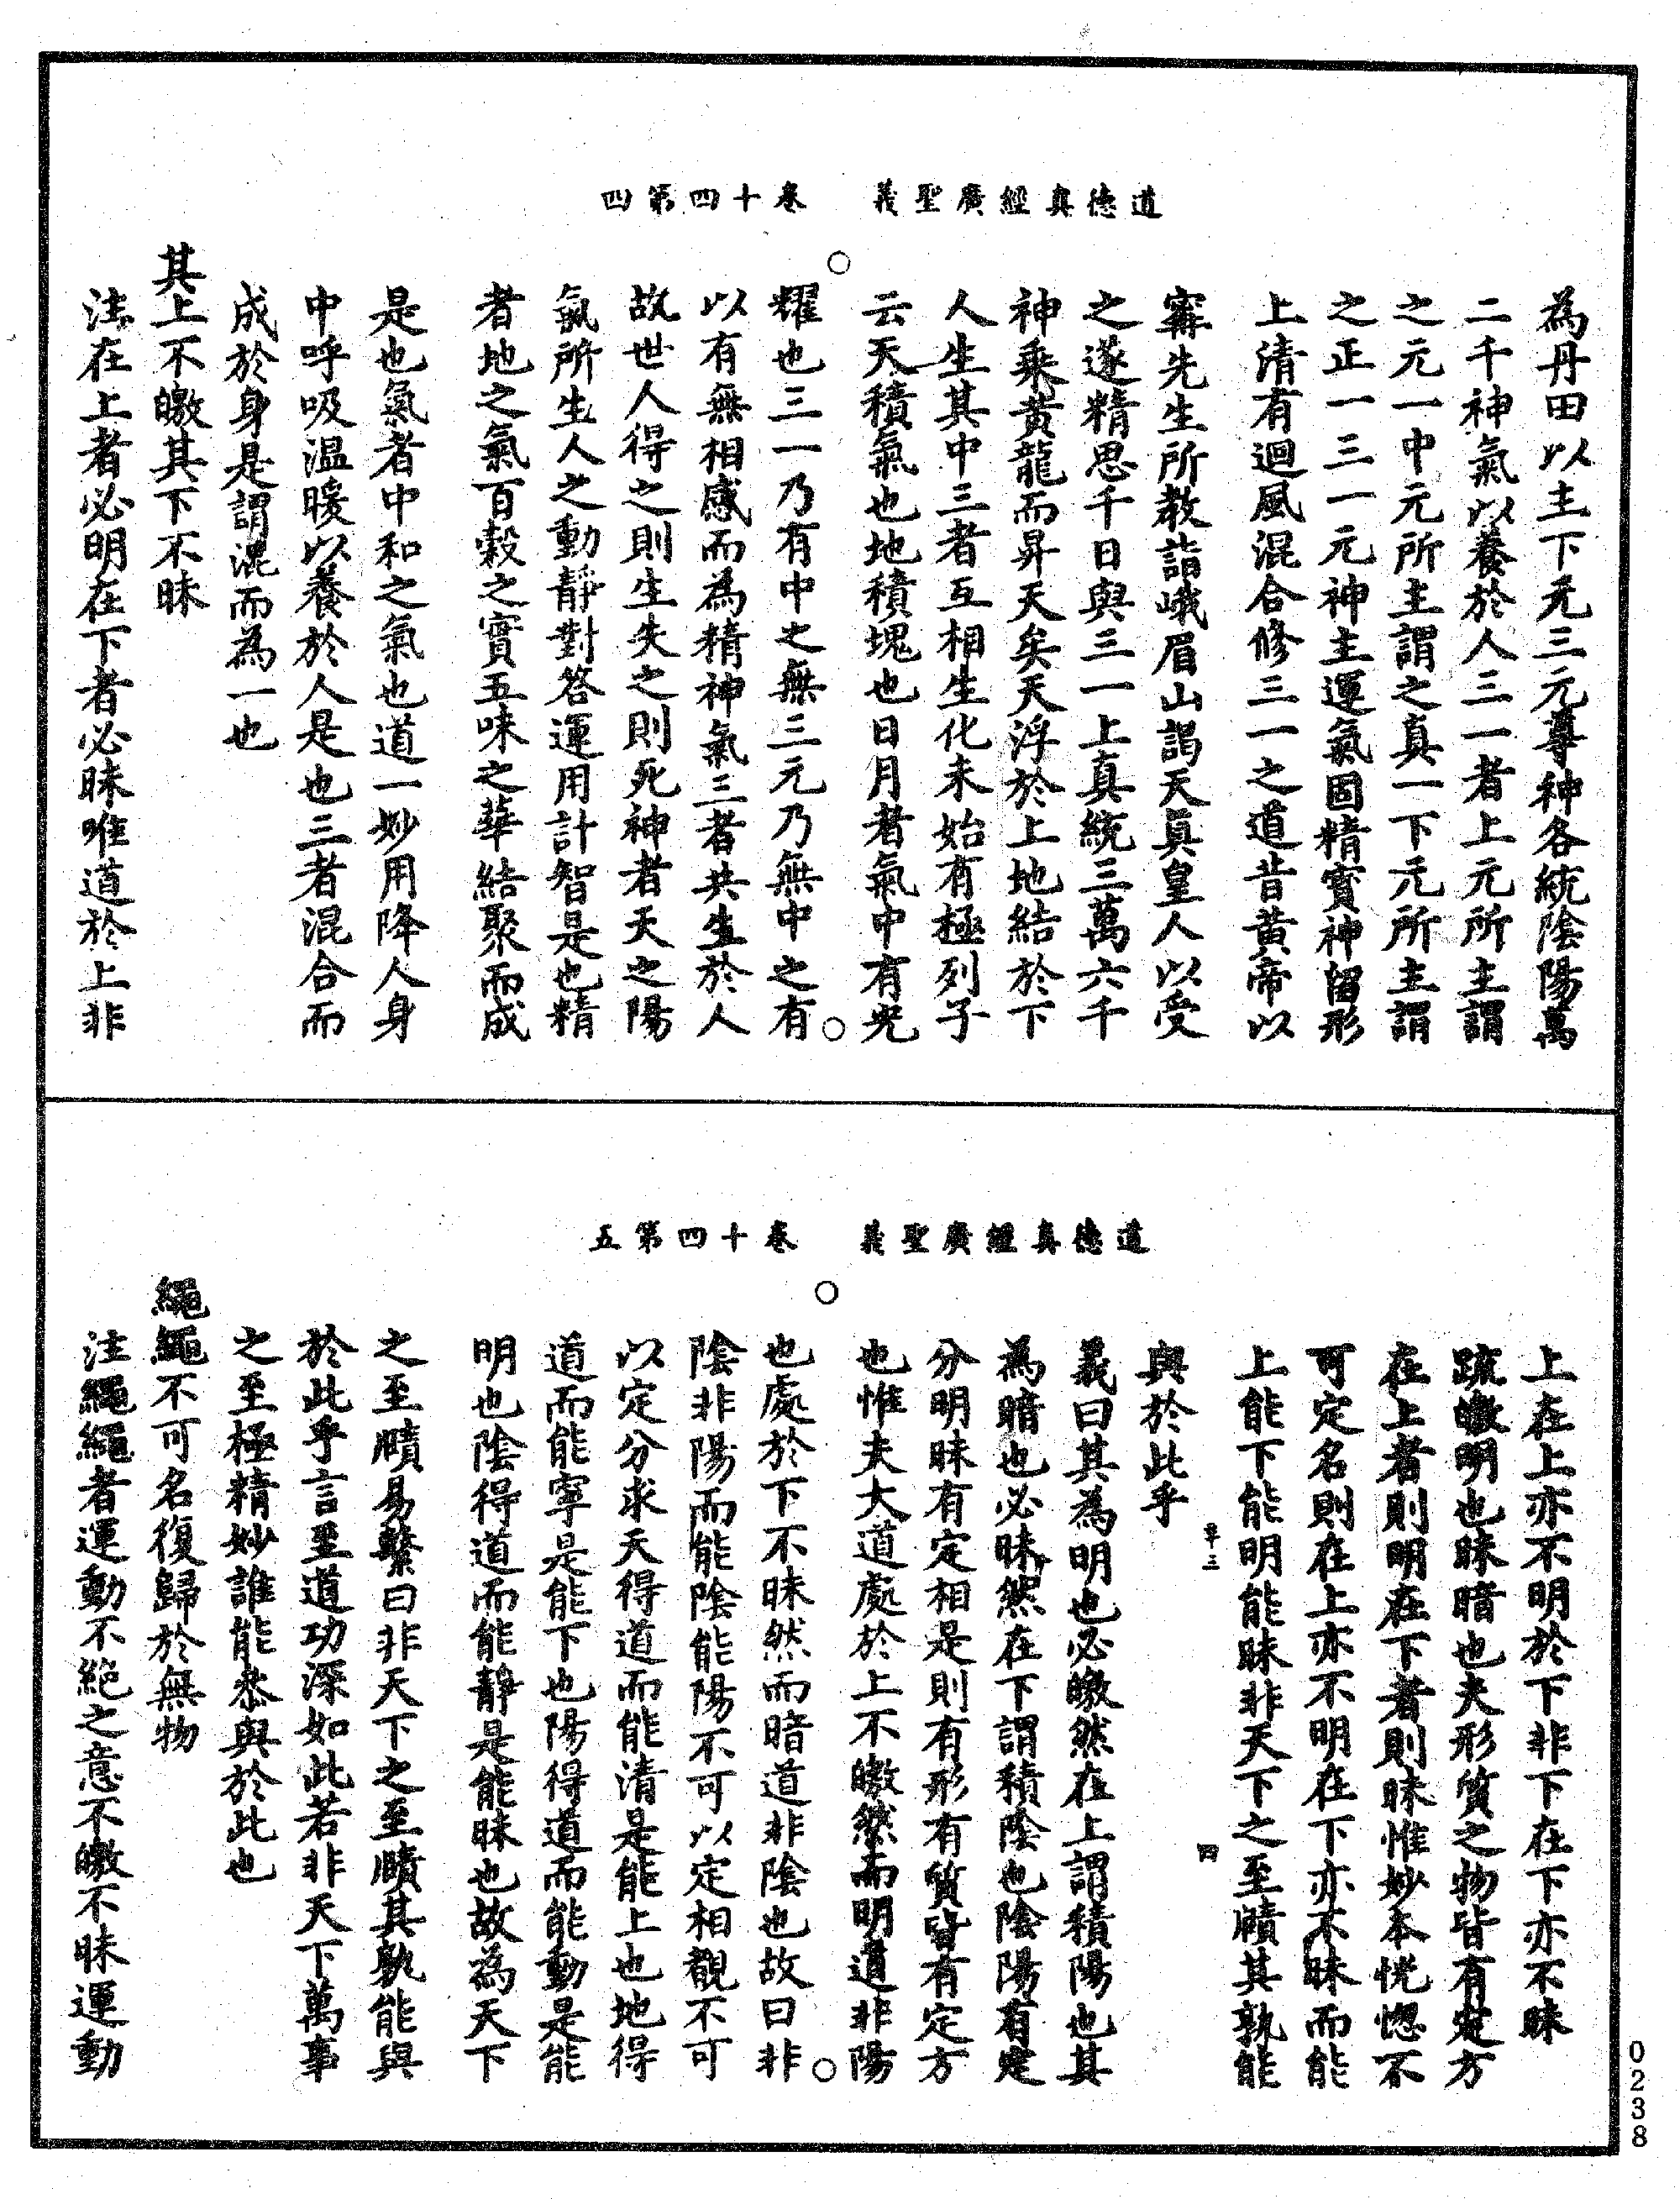 道德真經廣聖義　卷十四第四
為丹田以主下元三元尊神各統陰陽萬
二千神氣以養於人三一者上元所主謂
之元一中元所主謂之真一下元所主謂
之正一三一元神主運氣固精寶神留形
上清有迴風混合修三一之道昔黃帝以
甯先生所教詣峨眉山謁天真皇人以受
之遂精思千日與三一上真統三萬六千
神乘黃龍而昇天矣天浮於上地結於下
人生其中三者互相生化未始有極列子
云天積氣也地積塊也日月者氣中有光
耀也三一乃有中之無三元乃無中之有
以有無相感而為精神氣三者共生於人
故世人得之則生失之則死神者天之陽
氣所生人之動靜對答運用計智是也精
者地之氣百穀之實五味之華結聚而成
是也氣者中和之氣也道一妙用降人身
中呼吸溫暖以養於人是也三者混合而
成於身是謂混而為一也
其上不皦其下不昧
注在上者必明在下者必昧唯道於上非
道德真經廣聖義　卷十四第五
上在上亦不明於下非下在下亦不昧
疏皦明也昧暗也夫形質之物皆有定方
在上者則明在下者則昧惟妙本恍惚不
可定名則在上亦不明在下亦不昧而能
上能下能明能昧非天下之至賾其孰能
與於此乎
章三　四
義曰其為明也必皦然在上謂積陽也其
為暗也必昧然在下謂積陰也陰陽有定
分明昧有定相是則有形有質皆有定方
也惟夫大道處於上不皦然而明道非陽
也處於下不昧然而暗道非陰也故曰非
陰非陽而能陰能陽不可以定相觀不可
以定分求天得道而能清是能上也地得
道而能寧是能下也陽得道而能動是能
明也陰得道而能靜是能昧也故為天下
之至賾易繫曰非天下之至賾其孰能與
於此乎言至道功深如此若非天下萬事
之至極精妙誰能叅與於此也
繩繩不可名復歸於無物
注繩繩者運動不絕之意不皦不昧運動
0238